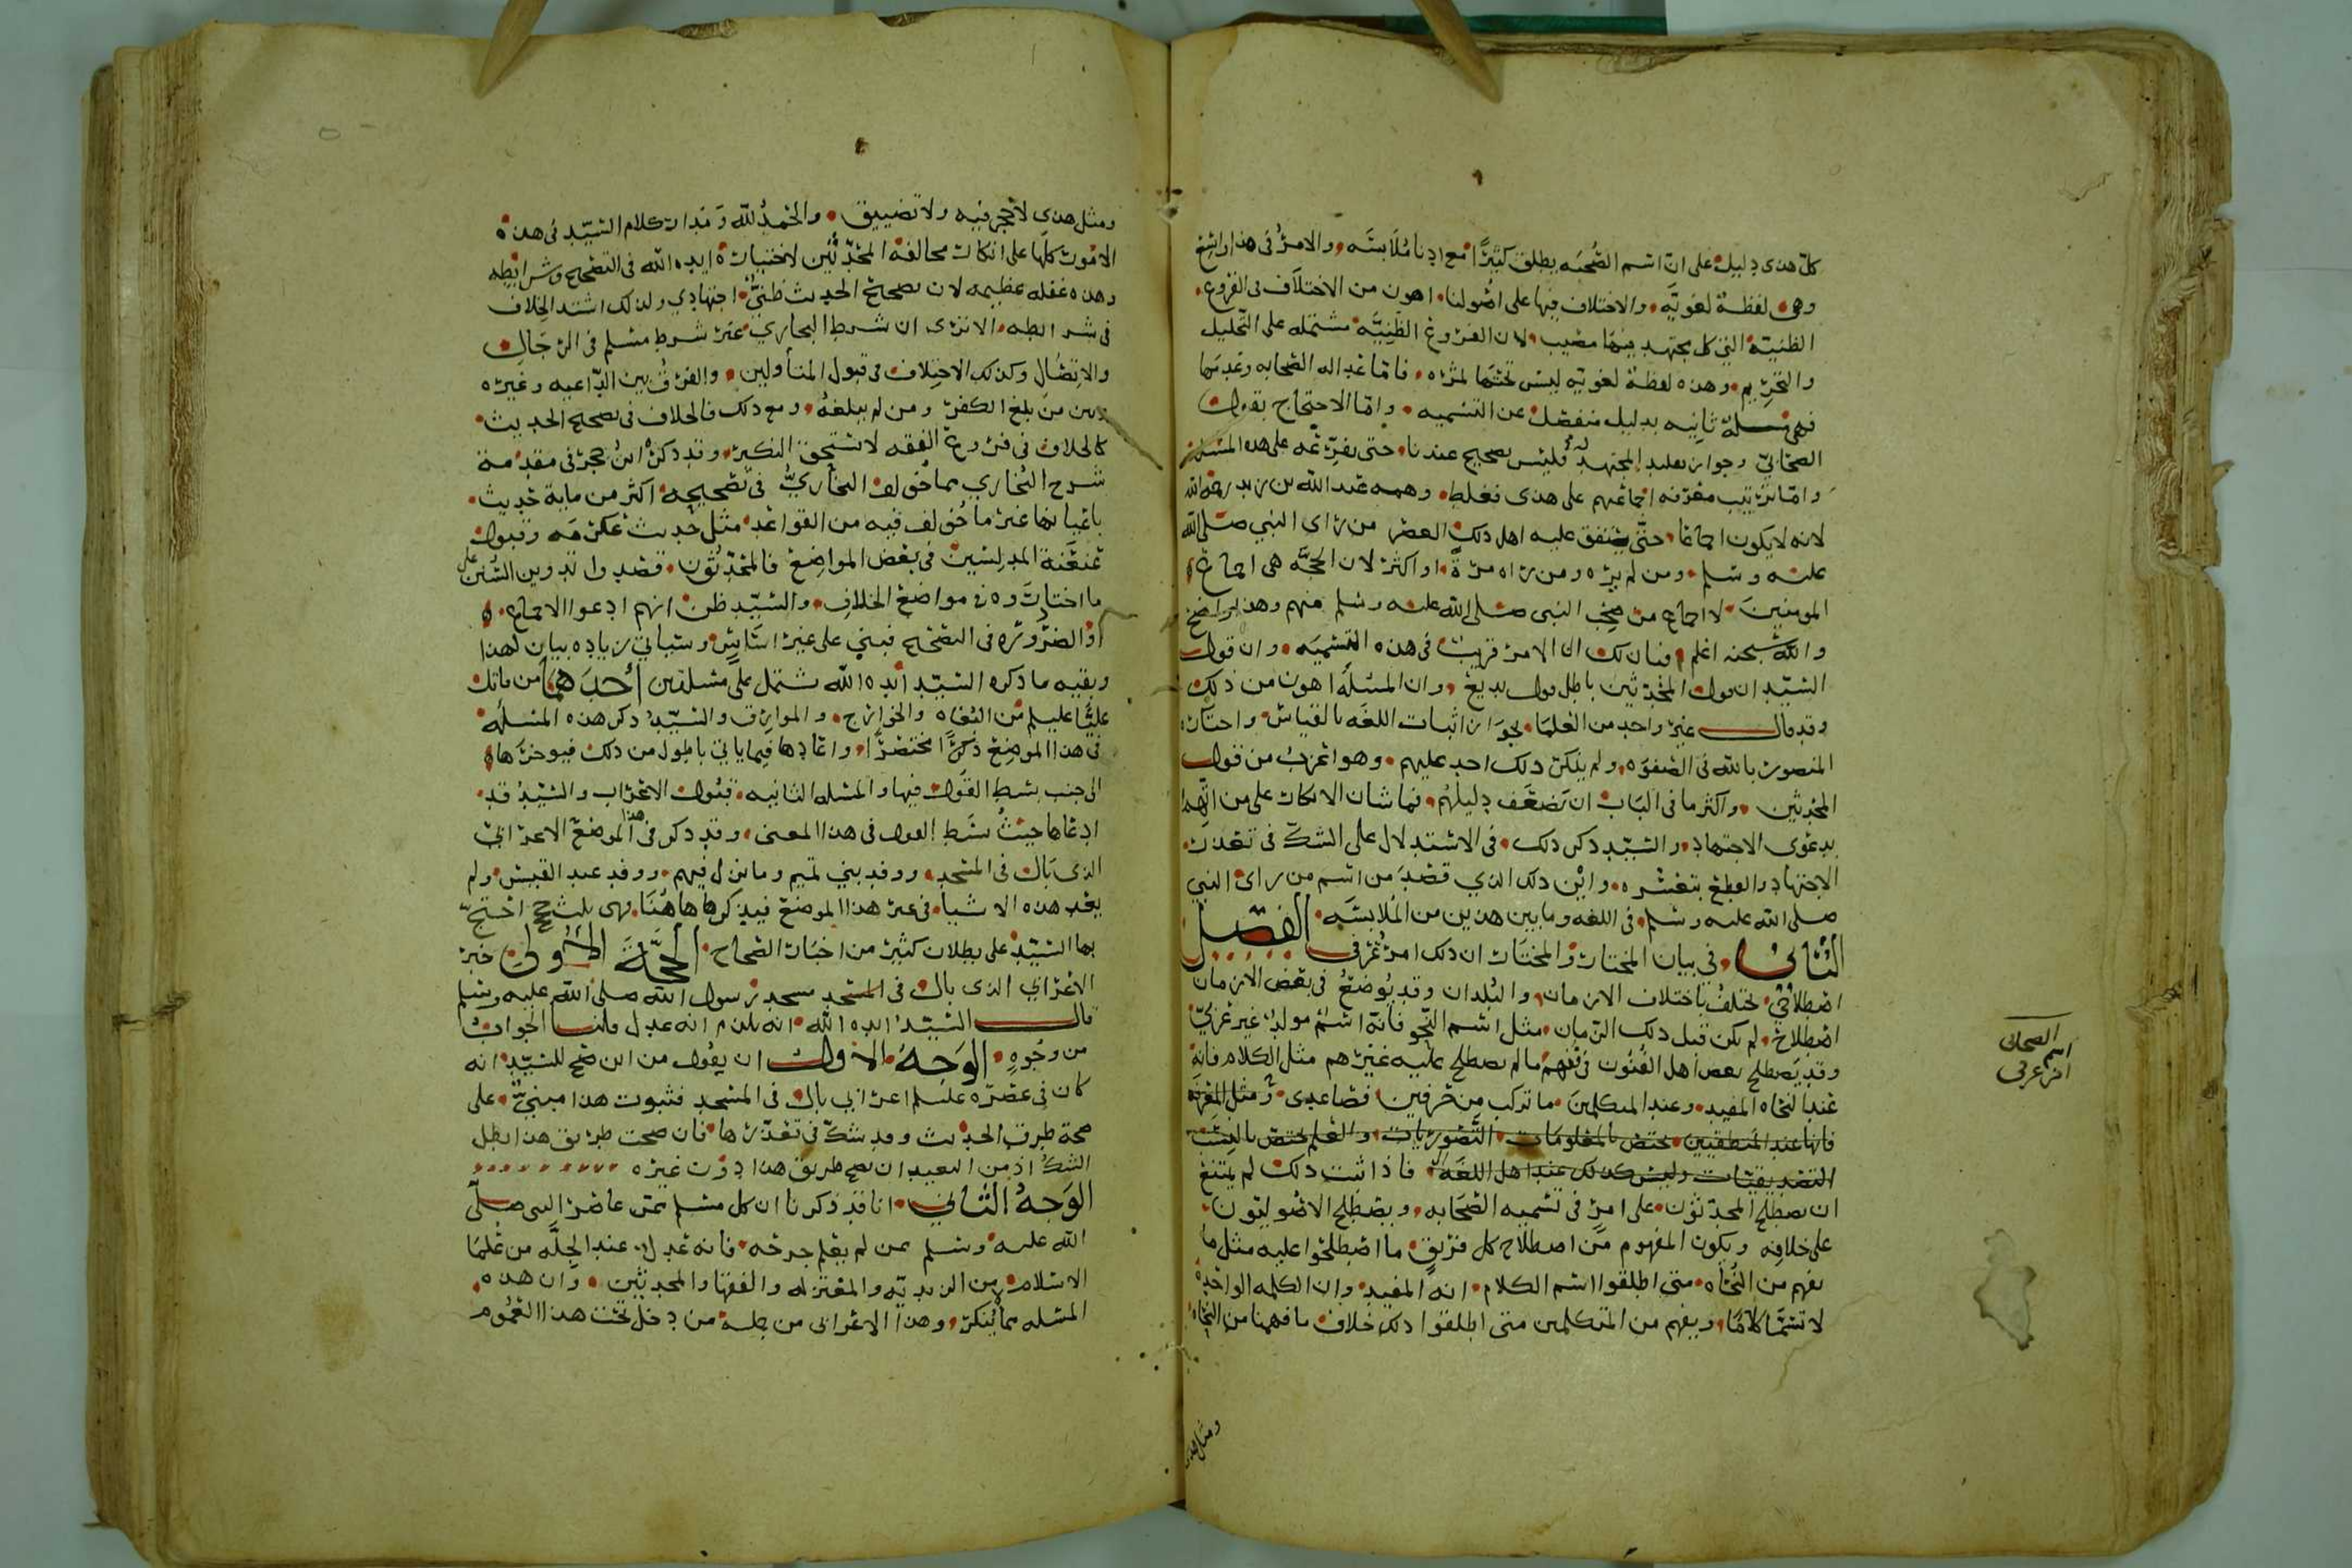 كل هدى دليل على ان اسم الصحبه يطلق كثيرًا مع ادنا ملابسَه والامرُ في هذا واسع
وهى لفظة لغويَّه والاختلاف فيها على اصولنا اهون من الاختلاف فى الفروع
الظنيّة التي كل مجتهد فيها مصيب لان الفروع الظنِّيَّة مشتمله على التحليل
والتحريم وهذه لفظة لغويّه ليس تحتها ثمره فاما عداله الصحابه وعدمها
فهى مسلة ثانيه بدليل منفصل عن التسميه واما الاحتجاج بقول
الصحابيّ وجواز تقليد المجتهد له فليس بصحيح عندنا حتى نفرّعه على هذه المسله
واما ترتيب معرفه اجماعهم على هدى فغلط وهمه عبد الله بن زيد رحمه الله
لانه لا يكون اجماعا حتّى يتفق عليه اهل ذلك العصر من راى النبي صلى الله
عليه وسلم ومن لم يره ومن راه مرّةً او اكثر لان الحجَّه هى اجماع
المومنين لا اجماع من صحب النبى صلى الله عليه وسلم منهم وهذا واضح
والله سبحنه اعلم فبان لك ان الامر قريب فى هذه التسميَه وان قول
السّيد ان قول المحدثين باطل قول بديع وان المسئلَه اهون من ذلك
وقد قال غير واحد من العلما بجواز اثبات اللغه بالقياس واختاره
المنصور بالله فى الصفوَه ولم ينكر ذلك احد عليهم وهو اغرب من قول
المحدثين واكثر ما فى الباب ان يَضعَف دليلهُم فما شان الانكار على من اتهم
بدعوى الاجتهاد والسّيّد ذكر ذلك فى الاستدلال على الشكّ فى تعذر
الاجتهاد والقطع بتعسّره واين ذلك الذي قصدَ من اسم من راى النبي
صلى الله عليه وسلم فى اللغه وما بين هذين من الملابسَه الفصل
الثاني فى بيان المختار والمختار ان ذلك امر عُرفي
اصطلاحى يختلفُ باختلاف الازمان والبُلدان وقد يُوضعُ في بعض الازمان
اصطلاح لم يكن قبل ذلك الزّمان مثل اسم النّحو فانّه اسمٌ مولدٌ غير عربيّ
وقد يَصطلح بعض اهل الفنُون فى فنّهم ما لم يصطلح عليه غيرهم مثل الكلام فانه
عند النحاه المفيد وعند المتكلمين ما تركب من حرفين فصاعدى ومثل المعرفه
فانها عند المنطقيين تختص بالمعلومات التَّصَوريات والعلم يختص بالنِسَب
التصديقيّات وليس كذلك عند اهل اللغه فاذا ثبت ذلك لم يمتنع
ان يصطلح المحدّثون على امرٍ فى تسميه الصّحَابه ويصطلح الاصُوليّون
على خلافِه ويكون المفهوم من اصطلاح كل فريقٍ ما اصطلحوا عليه مثل ما
نفهم من النُّحاه متى اطلقوا اسم الكلام انه المفيد وان الكلمه الواحده
لا تسمّا كلامًا ونفهم من المتكلمين متى اطلقوا ذلك خلاف ما فهمنا من النحاه
ومثل هدى
الصحابى
اسم
امر عرفى
ومثل هدى لا تحجر فيه ولا تضييق والحمدُ لله وَمَدار كلام السيّد فى هذه
الامُور كلّها على انكار مخالفة المحدّثين لاختياره ايده الله فى التصحيح وشرايطه
وهذه غفله عظيمه لان تصحيح الحديث ظنىٌّ اجتهادي ولذلك اشتد الخلاف
فى شرايطه الا ترى ان شرط البخاري غير شرط مسلم فى الرّجال
والاتصال وكذلك الاختلاف فى قبول المتأولين والفرق بين الدّاعيه وغيره
وبين من بلغ الكفر ومن لم يبلغهُ ومع ذلك فالخلاف فى تصحيح الحديث
كالخلاف فى فروع الفقه لا يستحق النكير وقد ذكر ابن حجر فى مقدمة
شرح البُخاري مما خُولف البخاريُّ فى تصحيحه اكثر من ماية حديث
باعيانها غير ما خُولف فيه من القواعد مثل حديث عكرمَه وقبول
عَنعَنة المدلسين فى بعض المواضع فالمحدّثون قصدوا تدوين السُّنن على
ما اختاروه فى مواضع الخلاف والسّيّد ظن انهم ادعوا الاجماع
او الضروره فى التصحيح فبني على غير اسَاسٍ وسياتي زياده بيان لهذا
وبقيه ما ذكره السّيّد أيّده الله يشتمل على مسلتين أحدَهما من قاتل
عليًّا عليلم من البُغاه والخوارج والموارق والسّيّدُ ذكر هذه المسئلَه
فى هذا الموضع ذكرًا مختصرًا واعادها فيما ياتي باطول من ذلك فيوخرها
الى جنب بسط القول فيها والمسله الثانيه قبُول الاعراب والسّيّد قد
ادعاها حيثُ بسَط القول فى هذا المعنى وقد ذكر فى هذا الموضع الاعرابي
الذى بَال فى المسجد ووفد بني تميم وما نزل فيهم ووفد عبد القيس ولم
يعد هذه الاشيا فى غير هذا الموضع فيذكرها هاهُنا وهى ثلث حجج احتج
بها السّيّد على بطلان كثير من اخبار الصّحاح الحجَّة الاولى خبر
الاعرابي الذى بال فى المسجد مسجد رسول الله صلى الله عليه وسلم
قال السّيّدُ ايده الله انه يلزم انه عدل قلنا الجوابُ
من وجُوهٍ الوَجهُ الاول ان يقُول من اين صَح للسّيّد انه
كان فى عصره عليلم اعرابي بال فى المسجد فثبوت هذا مبنيٌّ على
صحة طرق الحديث وقد شكّ فى تعذّرها فان صحت طريق هذا بطل
الشكّ اذ من البعيد ان تصح طريق هذا دُون غيره
الوَجهُ الثاني انا قد ذكرنا ان كل مسلم ممّن عاصر النبى صلّى
الله عليه وسلم ممن لم يعلم جرحَه فانه عدل عند الجِلَّه من عُلما
الاسلام من الزيديّه والمعتزله والفقها والمحدثين وان هذه
المسله مما يُنكر وهذا الاعرابى من جملة من دخل تحت هذا العموم